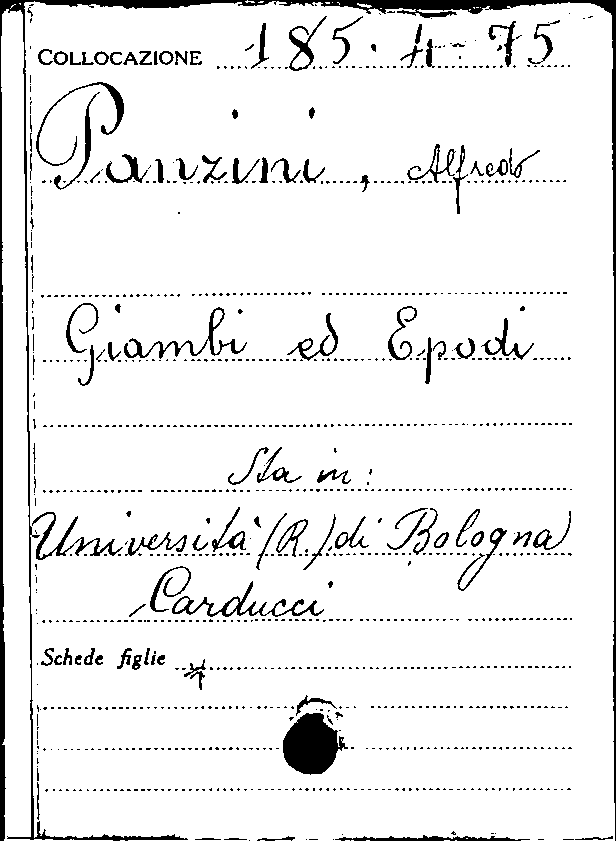 COLLOCAZIONE 185.4-75
Panzini, Alfredo
Giambi ed Epodi
Sta in:
Università (R.) di Bologna
Carducci
Schede figlie